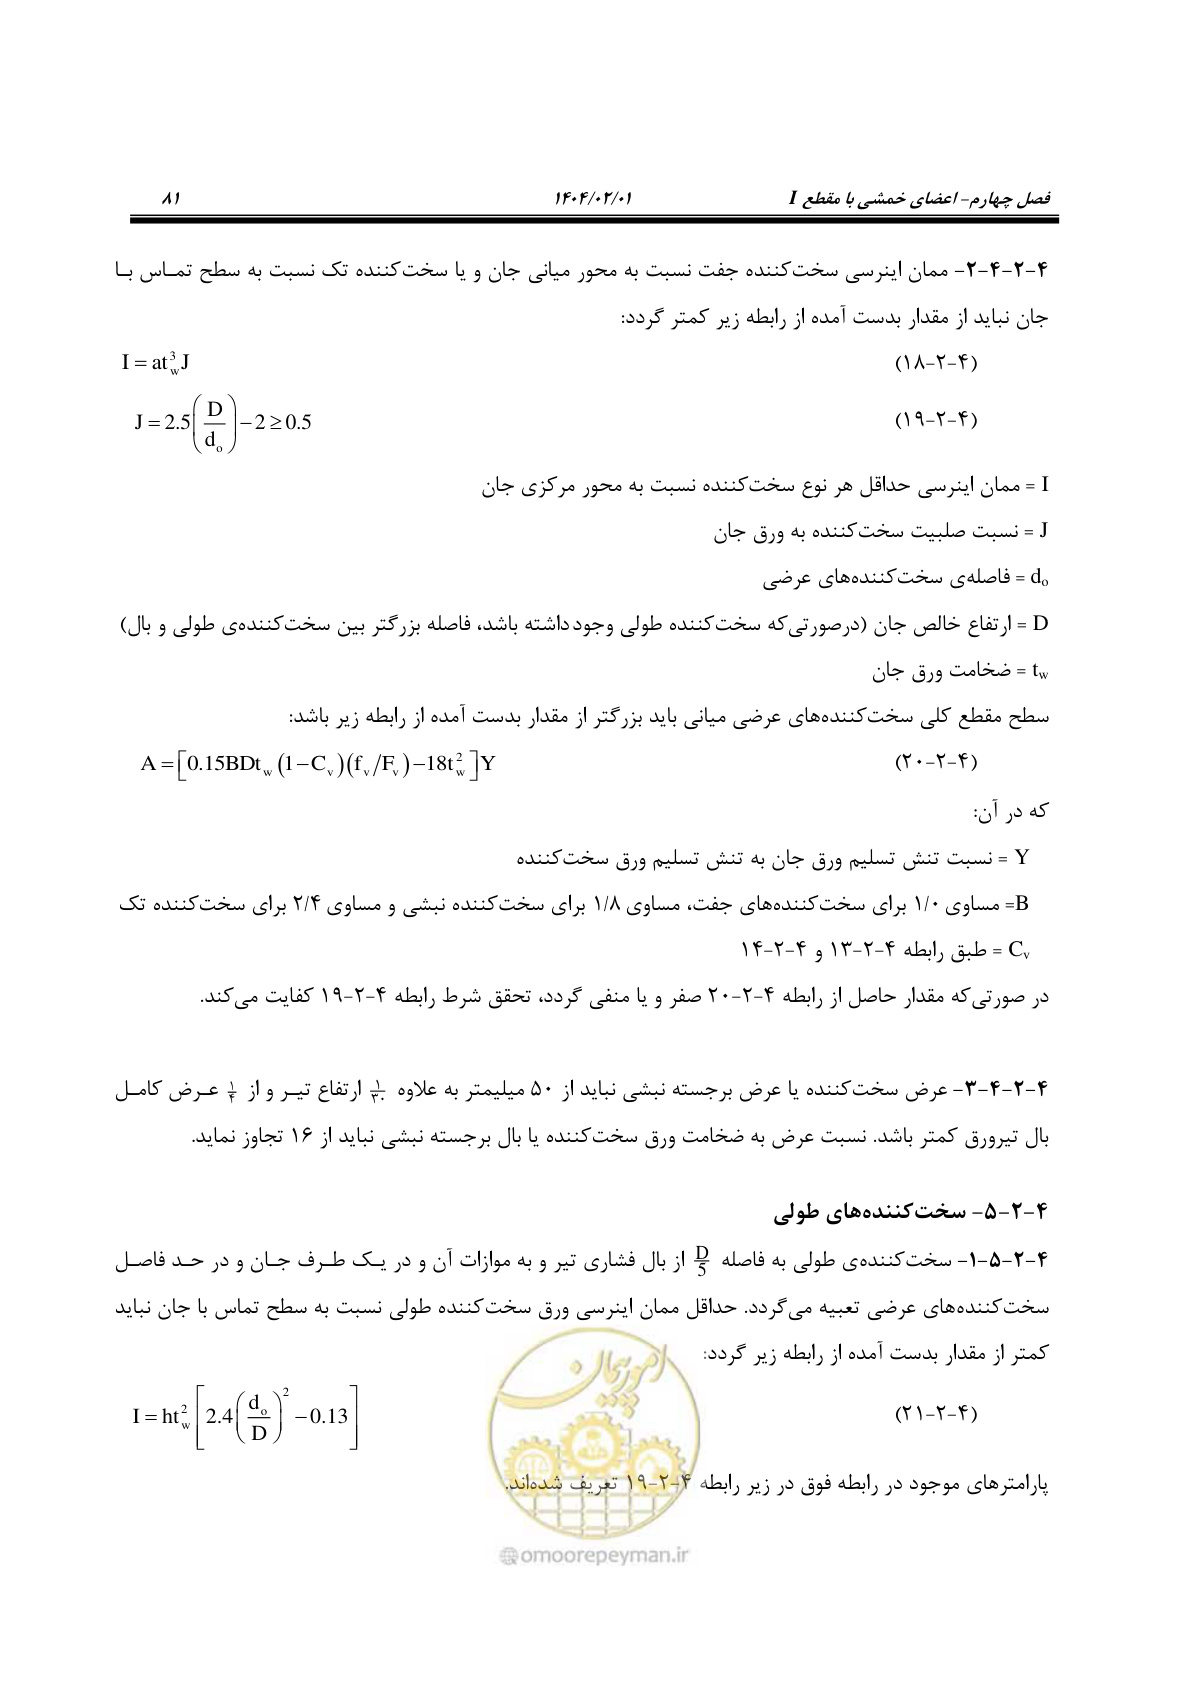 فصل چهارم- اعضای خمشی با مقطع I ۱۴۰۴/۰۲/۰۱ ۸۱
۴-۲-۴-۲- ممان اینرسی سخت‌کننده جفت نسبت به محور میانی جان و یا سخت‌کننده تک نسبت به سطح تماس با
جان نباید از مقدار بدست آمده از رابطه زیر کمتر گردد:
(۴-۲-۱۸) I = at_w^3 J
(۴-۲-۱۹) J = 2.5(D/d_o) − 2 ≥ 0.5
I = ممان اینرسی حداقل هر نوع سخت‌کننده نسبت به محور مرکزی جان
J = نسبت صلبیت سخت‌کننده به ورق جان
d_o = فاصله‌ی سخت‌کننده‌های عرضی
D = ارتفاع خالص جان (درصورتی‌که سخت‌کننده طولی وجود داشته باشد، فاصله بزرگتر بین سخت‌کننده‌ی طولی و بال)
t_w = ضخامت ورق جان
سطح مقطع کلی سخت‌کننده‌های عرضی میانی باید بزرگتر از مقدار بدست آمده از رابطه زیر باشد:
(۴-۲-۲۰) A = [0.15BDt_w (1 − C_v)(f_v/F_v) − 18t_w^2]Y
که در آن:
Y = نسبت تنش تسلیم ورق جان به تنش تسلیم ورق سخت‌کننده
B= مساوی ۱/۰ برای سخت‌کننده‌های جفت، مساوی ۱/۸ برای سخت‌کننده نبشی و مساوی ۲/۴ برای سخت‌کننده تک
C_v = طبق رابطه ۴-۲-۱۳ و ۴-۲-۱۴
در صورتی‌که مقدار حاصل از رابطه ۴-۲-۲۰ صفر و یا منفی گردد، تحقق شرط رابطه ۴-۲-۱۹ کفایت می‌کند.
۴-۲-۴-۳- عرض سخت‌کننده یا عرض برجسته نبشی نباید از ۵۰ میلیمتر به علاوه ۱/۳۰ ارتفاع تیر و از ۱/۴ عرض کامل
بال تیرورق کمتر باشد. نسبت عرض به ضخامت ورق سخت‌کننده یا بال برجسته نبشی نباید از ۱۶ تجاوز نماید.
۴-۲-۵- سخت‌کننده‌های طولی
۴-۲-۵-۱- سخت‌کننده‌ی طولی به فاصله D/5 از بال فشاری تیر و به موازات آن و در یک طرف جان و در حد فاصل
سخت‌کننده‌های عرضی تعبیه می‌گردد. حداقل ممان اینرسی ورق سخت‌کننده طولی نسبت به سطح تماس با جان نباید
کمتر از مقدار بدست آمده از رابطه زیر گردد:
(۴-۲-۲۱) I = ht_w^2 [2.4(d_o/D)^2 − 0.13]
پارامترهای موجود در رابطه فوق در زیر رابطه ۴-۲-۱۹ تعریف شده‌اند.
امور پیمان
@omoorepeyman.ir